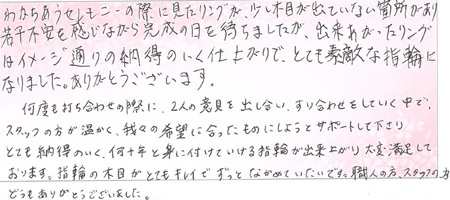 わかちあうせしもニーの際に見たリングが、少し木目が出ていない箇所があり
若干不安を感じながら完成の日を待ちましたが、出来あがったリング
はイメージ通りの納得のいく仕上がりで、とても素敵な指輪に
なりました。ありがとうございます。
何度も打ち合わせの際に、2人の意見を出し合い、すり合わせをしていく中で、
スタッフの方が温かく、我々の希望に合ったものにしようとサポートして下さり
とても納得のいく、何十年と身に付けていける指輪が出来上がり大変満足して
おります。指輪の木目がとてもキレイでずっとながめていたいです。職人の方、スタッフの方
どうもありがとうございました。